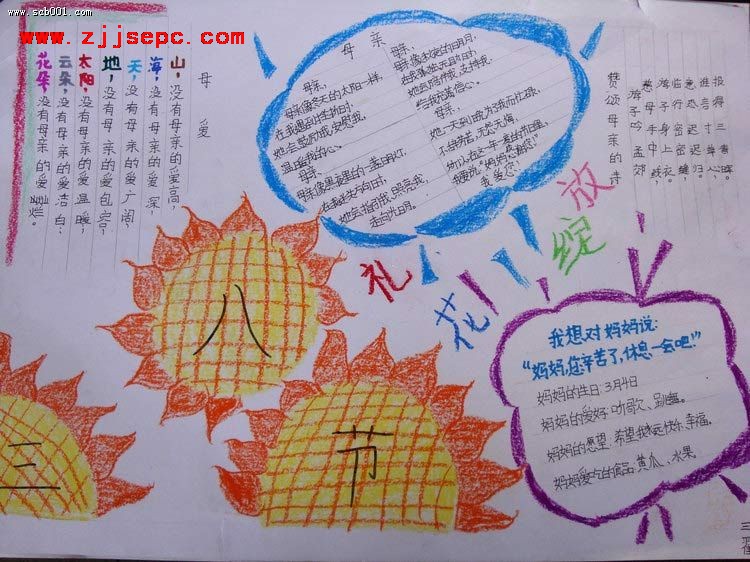 www.scb001.com
www.zjjsepc.com
母爱
山，没有母亲的爱高，
海，没有母亲的爱深，
天，没有母亲的爱广阔，
地，没有母亲的爱包容，
太阳，没有母亲的爱温暖，
云朵，没有母亲的爱洁白，
花朵，没有母亲的爱灿烂。
母亲
母亲，
母亲像冬天的太阳一样，
在我遇到挫折时，
她会鼓励我安慰我，
温暖我的心。
母亲，
母亲像黑夜里的一盏明灯，
在我迷失方向时，
她会指引我，照亮我，
走向光明。
母亲，
她会陪伴我，支持我，
信心。
母亲，
她一天到晚为我而忙碌，
无怨无悔，
所以，在这一年一度的
我要说：“妈妈
我爱您！”
赞颂母亲的诗
游子吟 孟郊
慈母手中线，
游子身上衣。
临行密密缝，
意恐迟迟归。
谁言寸草心，
报得三春晖。
礼花绽放
三八节
我想对妈妈说：
“妈妈，您辛苦了，休息一会吧！”
妈妈的生日：3月4日
妈妈的爱好：唱歌、跳舞。
妈妈的愿望：希望我永远快乐、幸福。
妈妈爱吃的食品：黄瓜、水果。
三